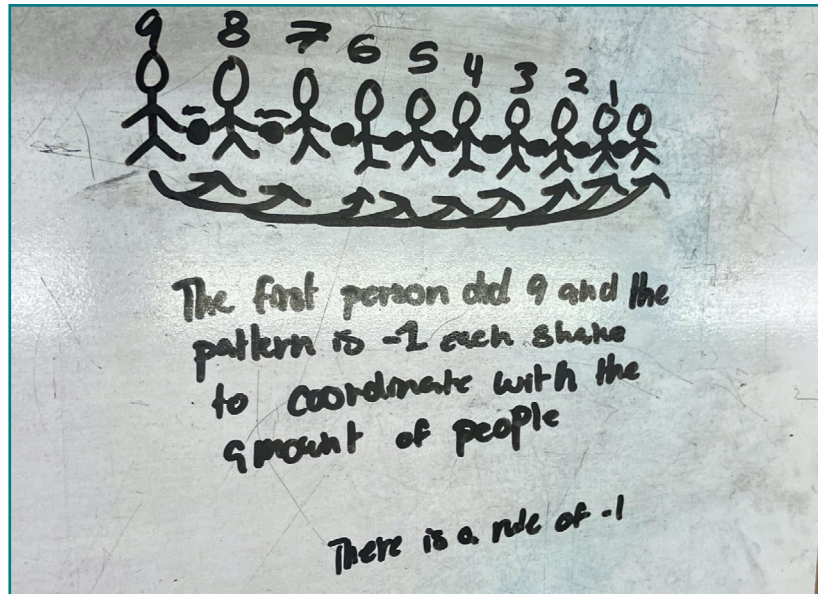 9 8 7 6 5 4 3 2 1
The first person did 9 and the
pattern is -1 each shake
to coordinate with the
amount of people
There is a rule of -1